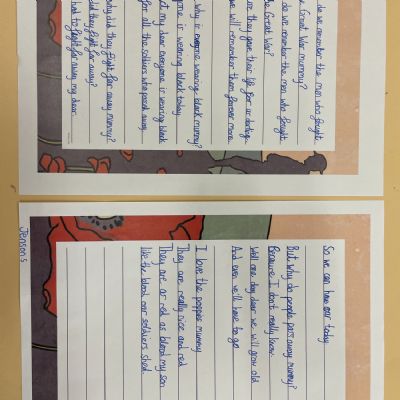 do we remember the men who fought
Great War mummy?
do we remember the men who fought
the Great War?
they gave their life for us darling
we will remember them forever more
why is everyone wearing black mummy?
is wearing black today
my dear everyone is wearing black
for all the soldiers who passed away
why did they fight far away mummy?
did they fight far away?
had to fight far away my dear.
So we can hav our today
But why do people pass away mummy?
Because I don't really know.
Well one day dear we will grow old
And even we'll have to go.
I love the poppies mummy
They are really nice and red
They are ar red as blood my son
like the blood our soldiers shed.
Jenson.S